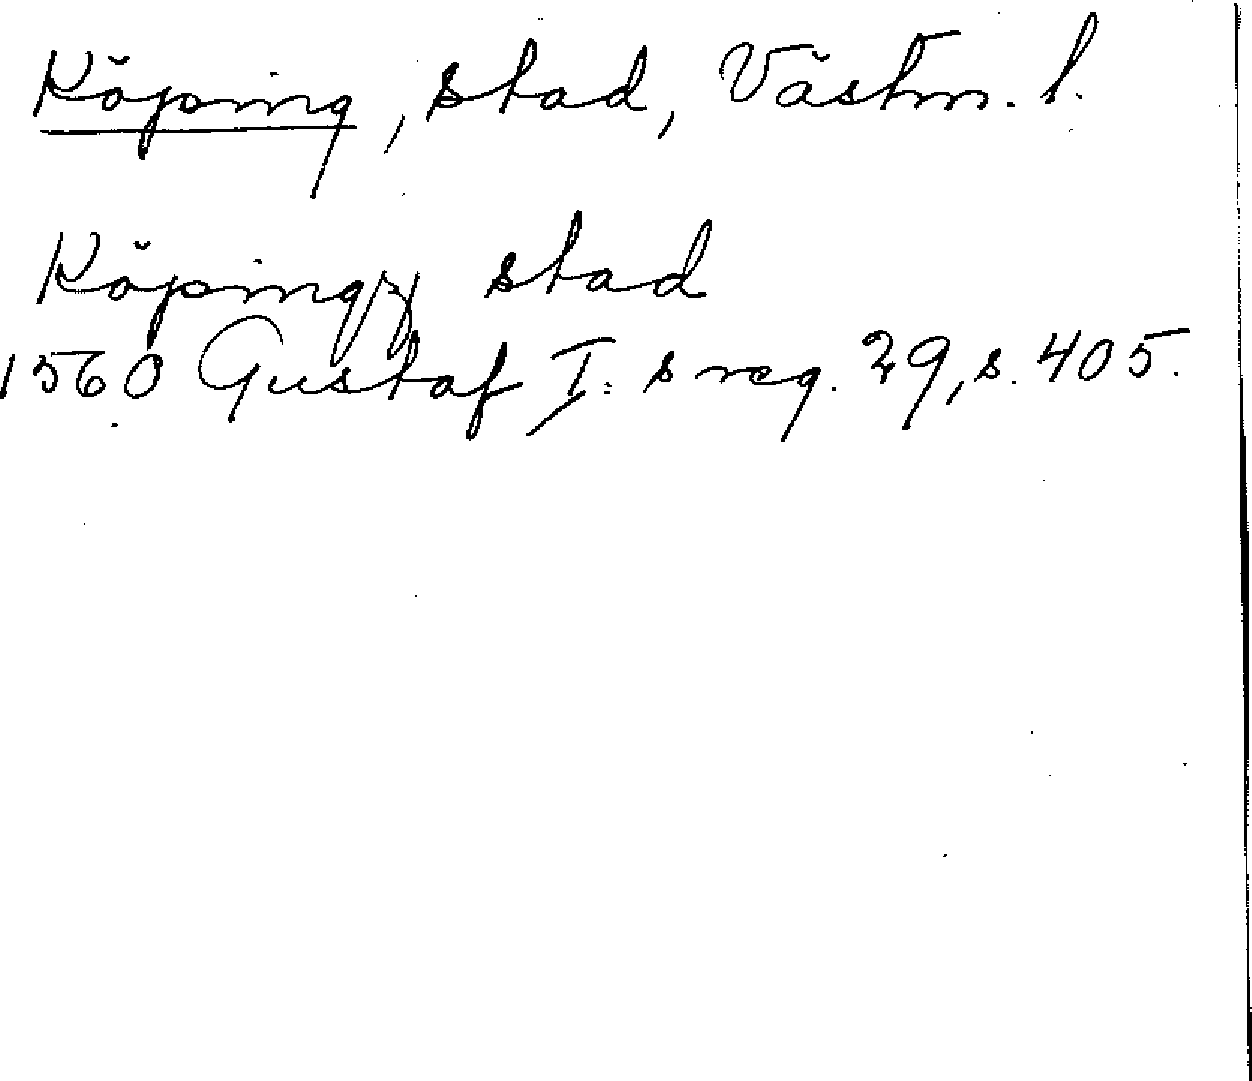 Köping, stad, Västm. l.
Köping stad
1560 Gustaf I:s reg. 29, s. 405.